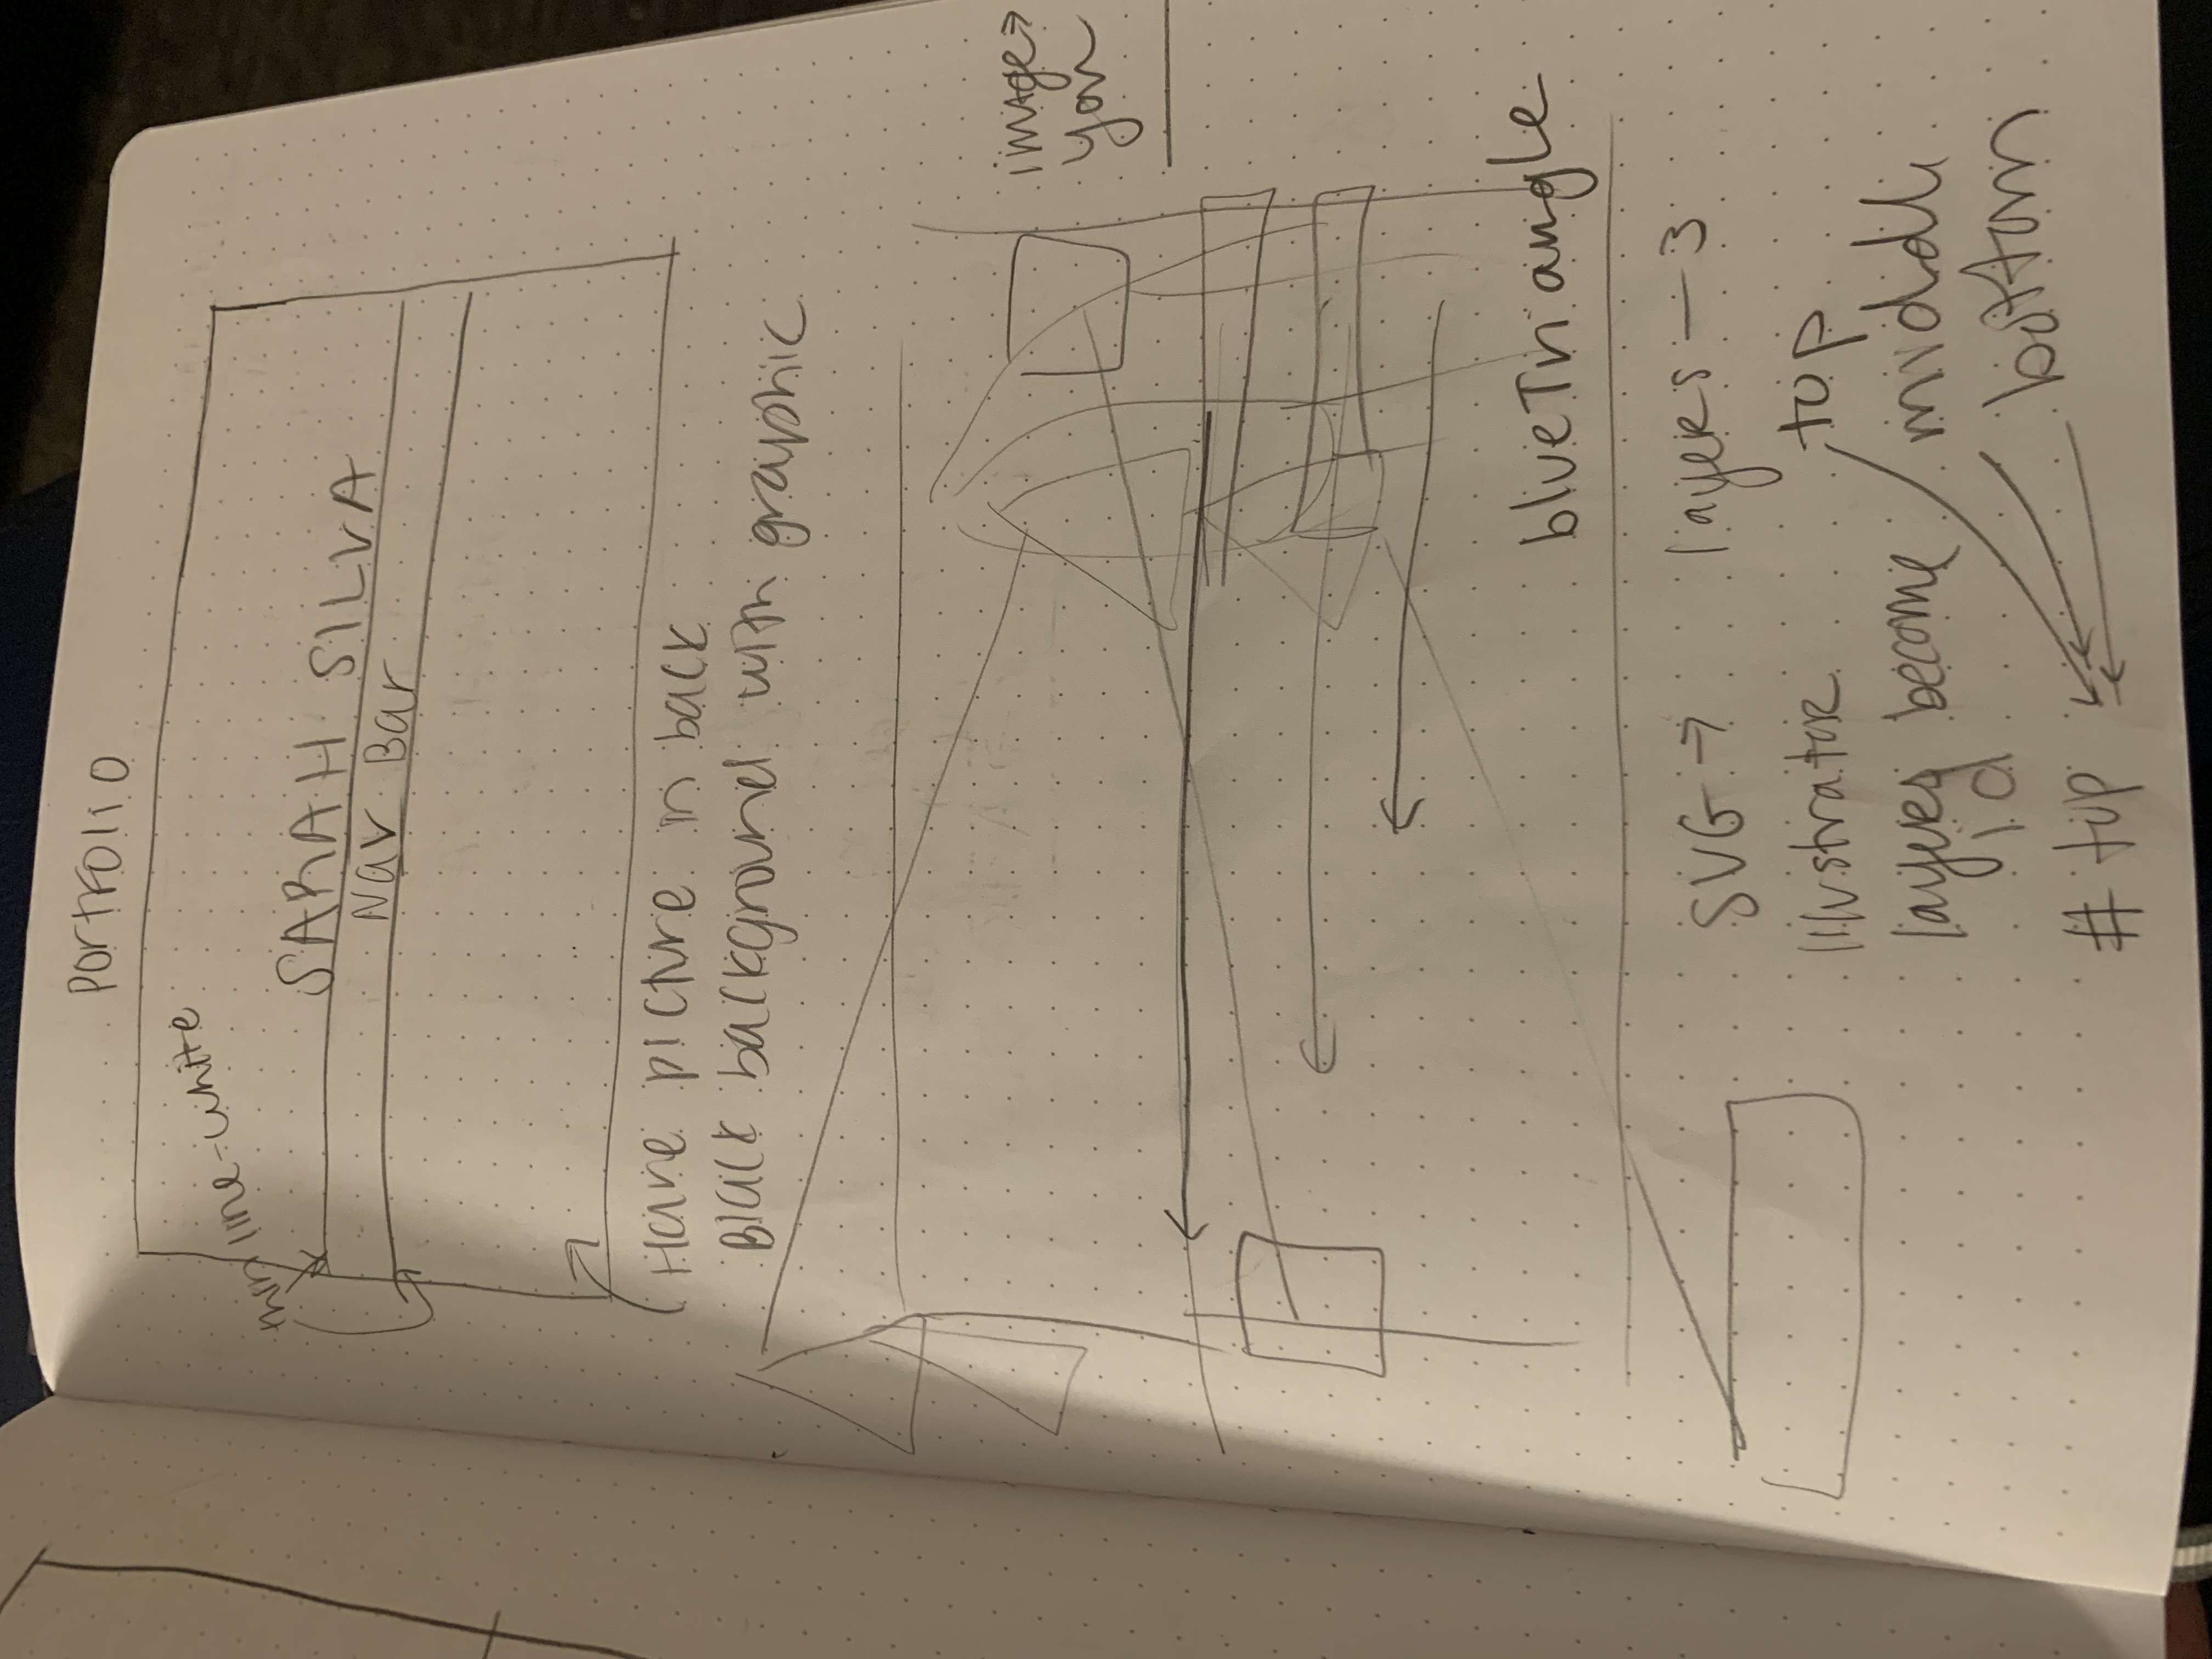 Portfolio
thin line-white
SARAH SILVA
Nav Bar
Have picture in back
Black background with graphic
image→
you
blueTriangle
SVG → layers — 3
Illustrator
top
layers become
id
middle
bottom
# top